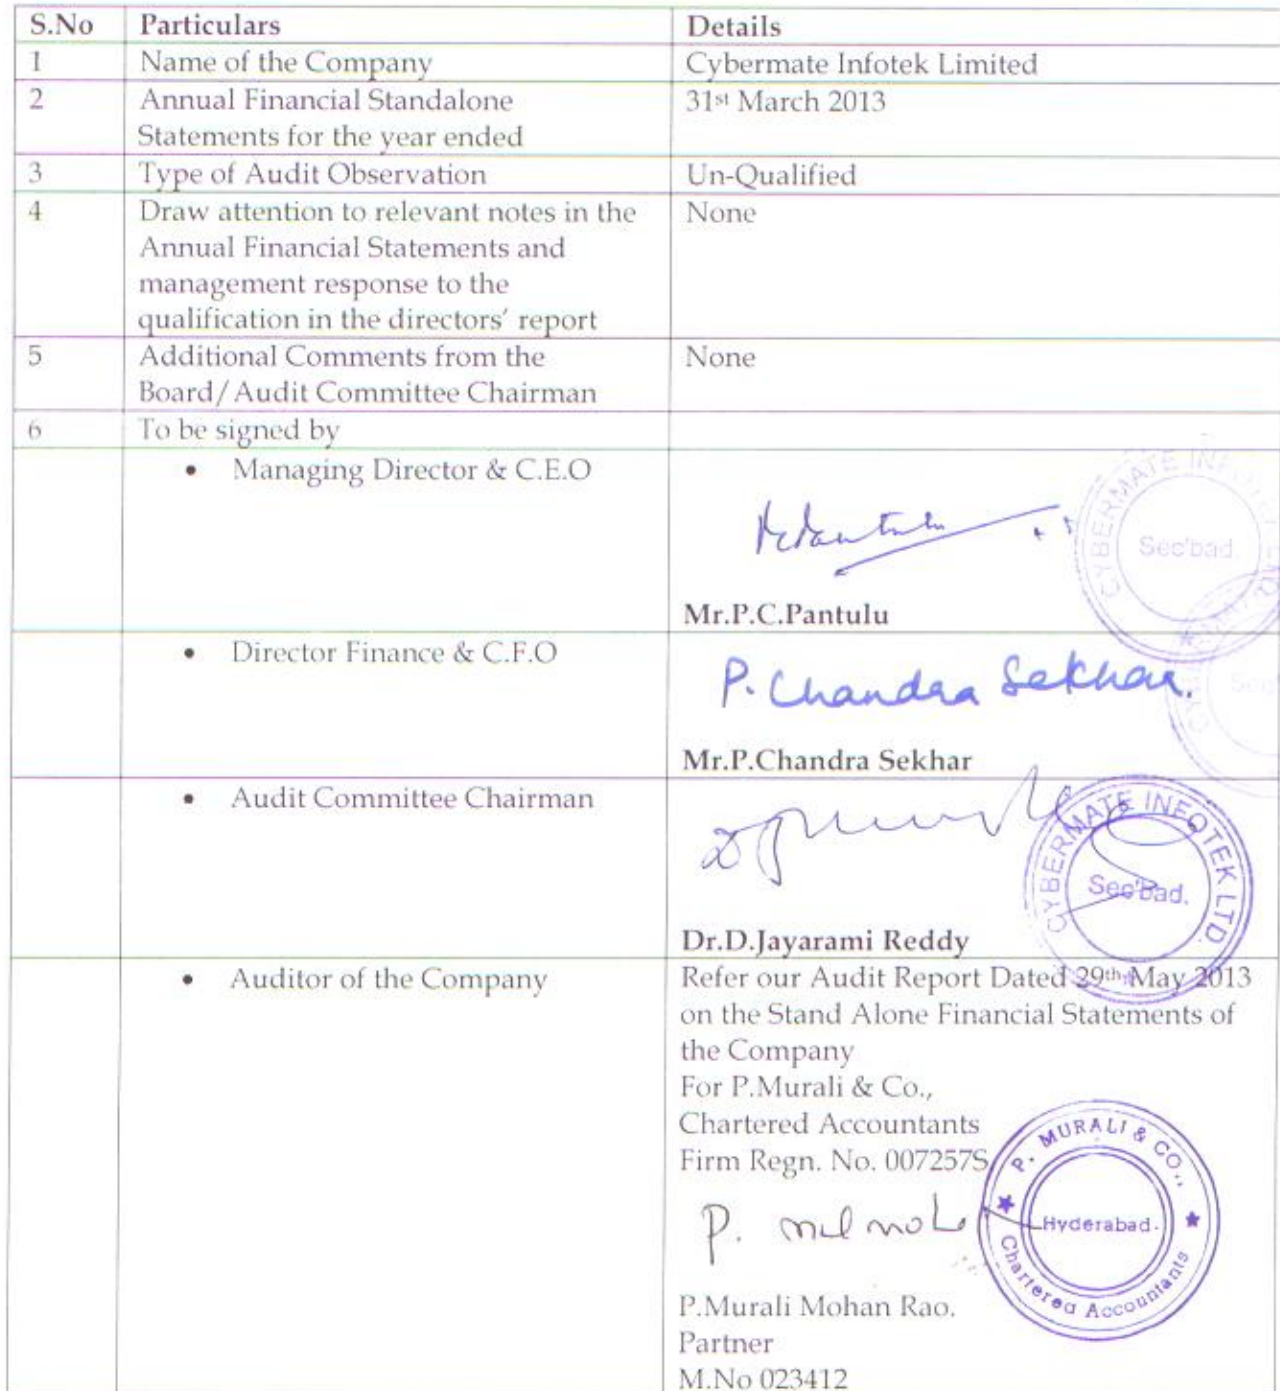 S.No Particulars Details
1 Name of the Company Cybermate Infotek Limited
2 Annual Financial Standalone 31st March 2013
Statements for the year ended
3 Type of Audit Observation Un-Qualified
4 Draw attention to relevant notes in the None
Annual Financial Statements and
management response to the
qualification in the directors' report
5 Additional Comments from the None
Board/Audit Committee Chairman
6 To be signed by
• Managing Director & C.E.O
CYBERMATE INFOTEK LTD.
Sec'bad.
Mr.P.C.Pantulu
• Director Finance & C.F.O
P. Chandra Sekhar.
Mr.P.Chandra Sekhar
• Audit Committee Chairman
CYBERMATE INFOTEK LTD.
Sec'bad.
Dr.D.Jayarami Reddy
• Auditor of the Company Refer our Audit Report Dated 29th May 2013
on the Stand Alone Financial Statements of
the Company
For P.Murali & Co.,
Chartered Accountants
Firm Regn. No. 007257S
P. MURALI & CO.,
Hyderabad.
Chartered Accountants
P.Murali Mohan Rao.
Partner
M.No 023412